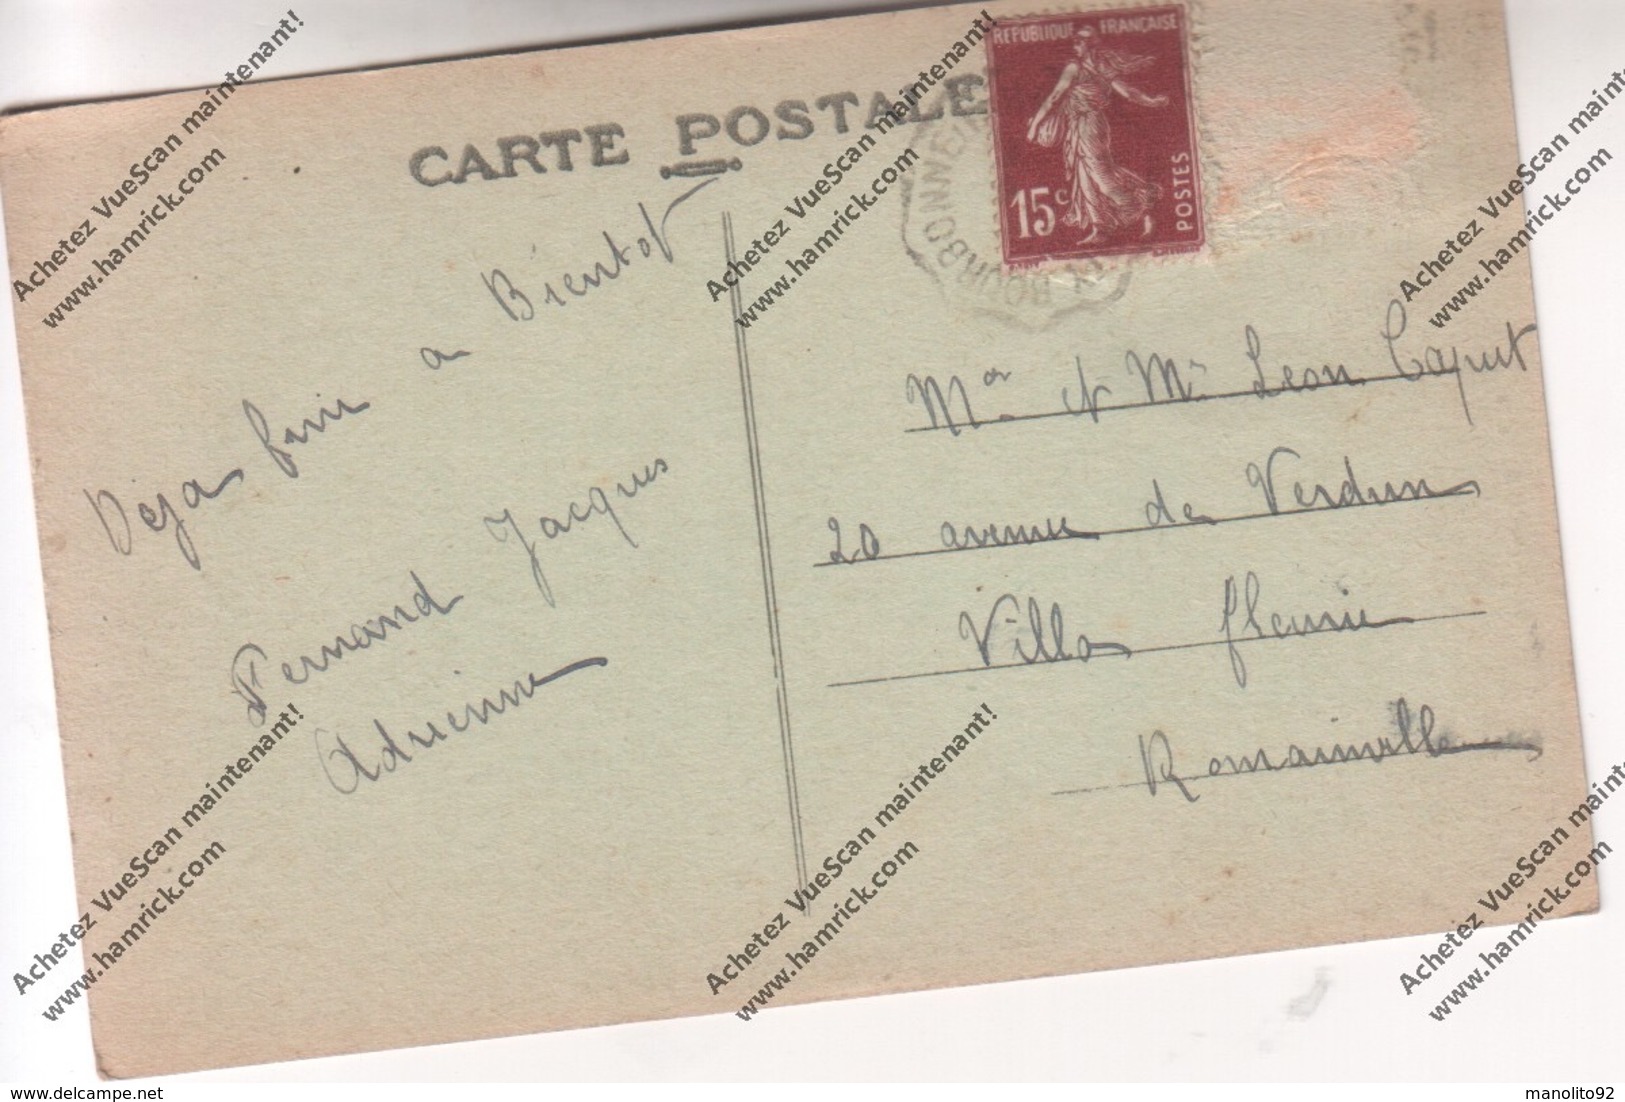 CARTE POSTALE
REPUBLIQUE FRANÇAISE
15c
POSTES
BOURBONNE
Deja fini a Bientot
Fernand Jacques
Adrienne
Mor et Me Leon Caput
20 avenue de Verdun
Villa fleurie
Romainville
Achetez VueScan maintenant!
www.hamrick.com
Achetez VueScan maintenant!
www.hamrick.com
Achetez VueScan mainten
www.hamrick.com
Achetez VueScan maintenant!
www.hamrick.com
Achetez VueScan maintenant!
www.hamrick.com
Achetez VueScan mainten
www.hamrick.com
delcampe.net
manolito92